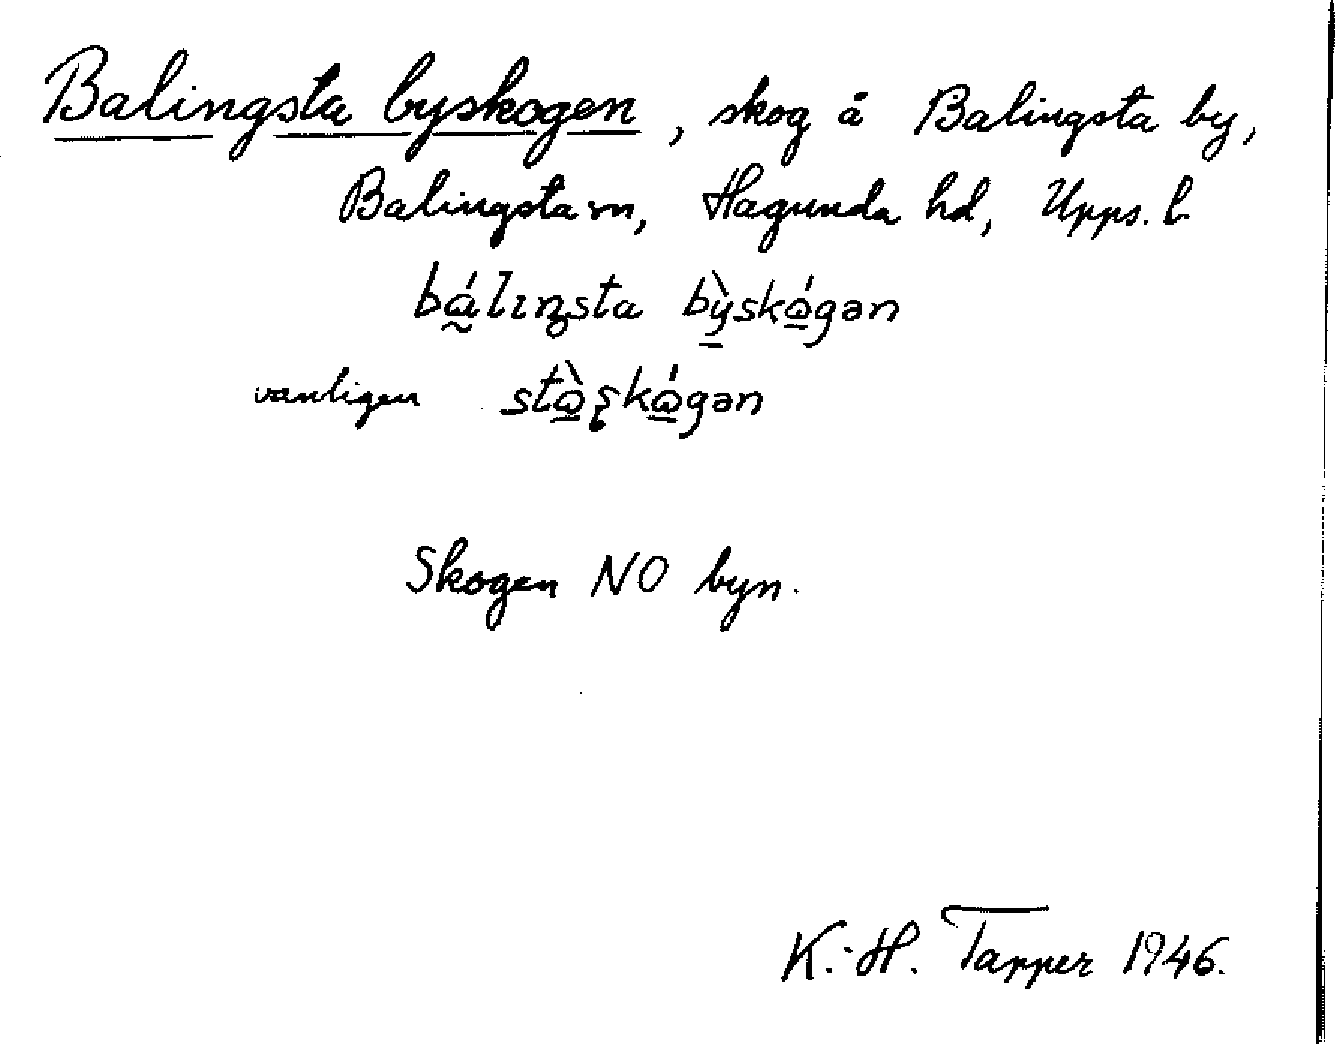 Balingsta byskogen, skog å Balingsta by,
Balingsta sn, Hagunda hd, Upps. l.
bá̰lıŋsta bỳ̠skɷ̠́gən
vanligen stɷ̠̀ʂkɷ̠́gən
Skogen NO byn.
K.-H. Tapper 1946.